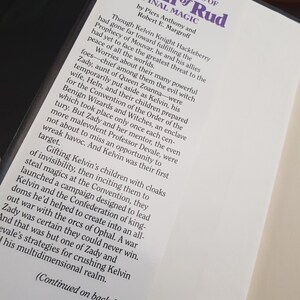 OF
of Rud
INAL MAGIC
by Piers Anthony and
Robert E. Margroff
Though Kelvin Knight Hackleberry
had gone far toward fulfilling the
Prophecy of Mouvar, he and his allies
had yet to face the greatest threat to the
peace of all the worlds.
Worries about their many growing
foes—chief among them the evil witch
Zady, aunt of Queen Zoanna—were
temporarily put aside as Kelvin, his
wife, Heln, and their children prepared
for the Convention of the Order of the
Benign Wizards and Witches, an enclave
which took place only once each cen-
tury. But Zady and her mentor, the even
more malevolent Professor Devale, were
not about to miss an opportunity to
wreak havoc. And Kelvin was their first
target.
Gifting Kelvin's children with cloaks
of invisibility, then inciting them to
steal magics at the Convention, they
launched a campaign designed to lead
Kelvin and the Confederation of king-
doms he'd helped to create into an all-
out war with the orcs of Ophal. A war
Zady was certain they could never win.
And that was but one of Zady and
evale's strategies for crushing Kelvin
d his multidimensional realm.
(Continued on back